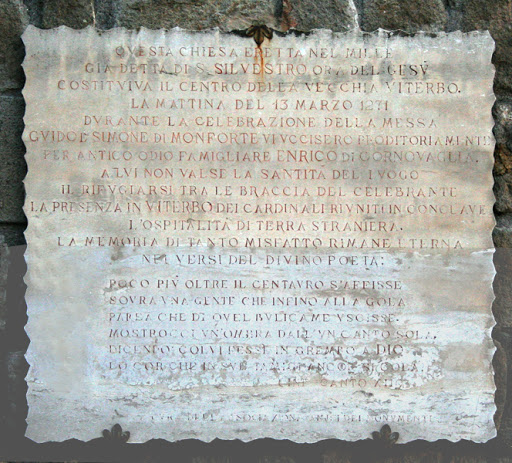 QUESTA CHIESA ERETTA NEL MILLE
GIA DETTA DI S. SILVESTRO ORA DEL GESÙ
COSTITVIVA IL CENTRO DELLA VECCHIA VITERBO.
LA MATTINA DEL 13 MARZO 1271
DURANTE LA CELEBRAZIONE DELLA MESSA
GUIDO E SIMONE DI MONFORTE VI UCCISERO PRODITORIAMENTE
PER ANTICO ODIO FAMIGLIARE ENRICO DI CORNOVAGLIA.
A LVI NON VALSE LA SANTITA DEL LUOGO
IL RIFUGIARSI TRA LE BRACCIA DEL CELEBRANTE
LA PRESENZA IN VITERBO DEI CARDINALI RIUNITI IN CONCLAVE
L'OSPITALITÀ DI TERRA STRANIERA.
LA MEMORIA DI TANTO MISFATTO RIMANE ETERNA
NEI VERSI DEL DIVINO POETA:
POCO PIÙ OLTRE IL CENTAURO S'AFFISSE
SOVRA UNA GENTE CHE INFINO ALLA GOLA
PAREA CHE DI QUEL BULICAME USCISSE.
MOSTROCCI UN'OMBRA DALL'UN CANTO SOLA,
DICENDO: COLVI FESSE IN GREMBO A DIO
LO COR CHE
INF. CANTO